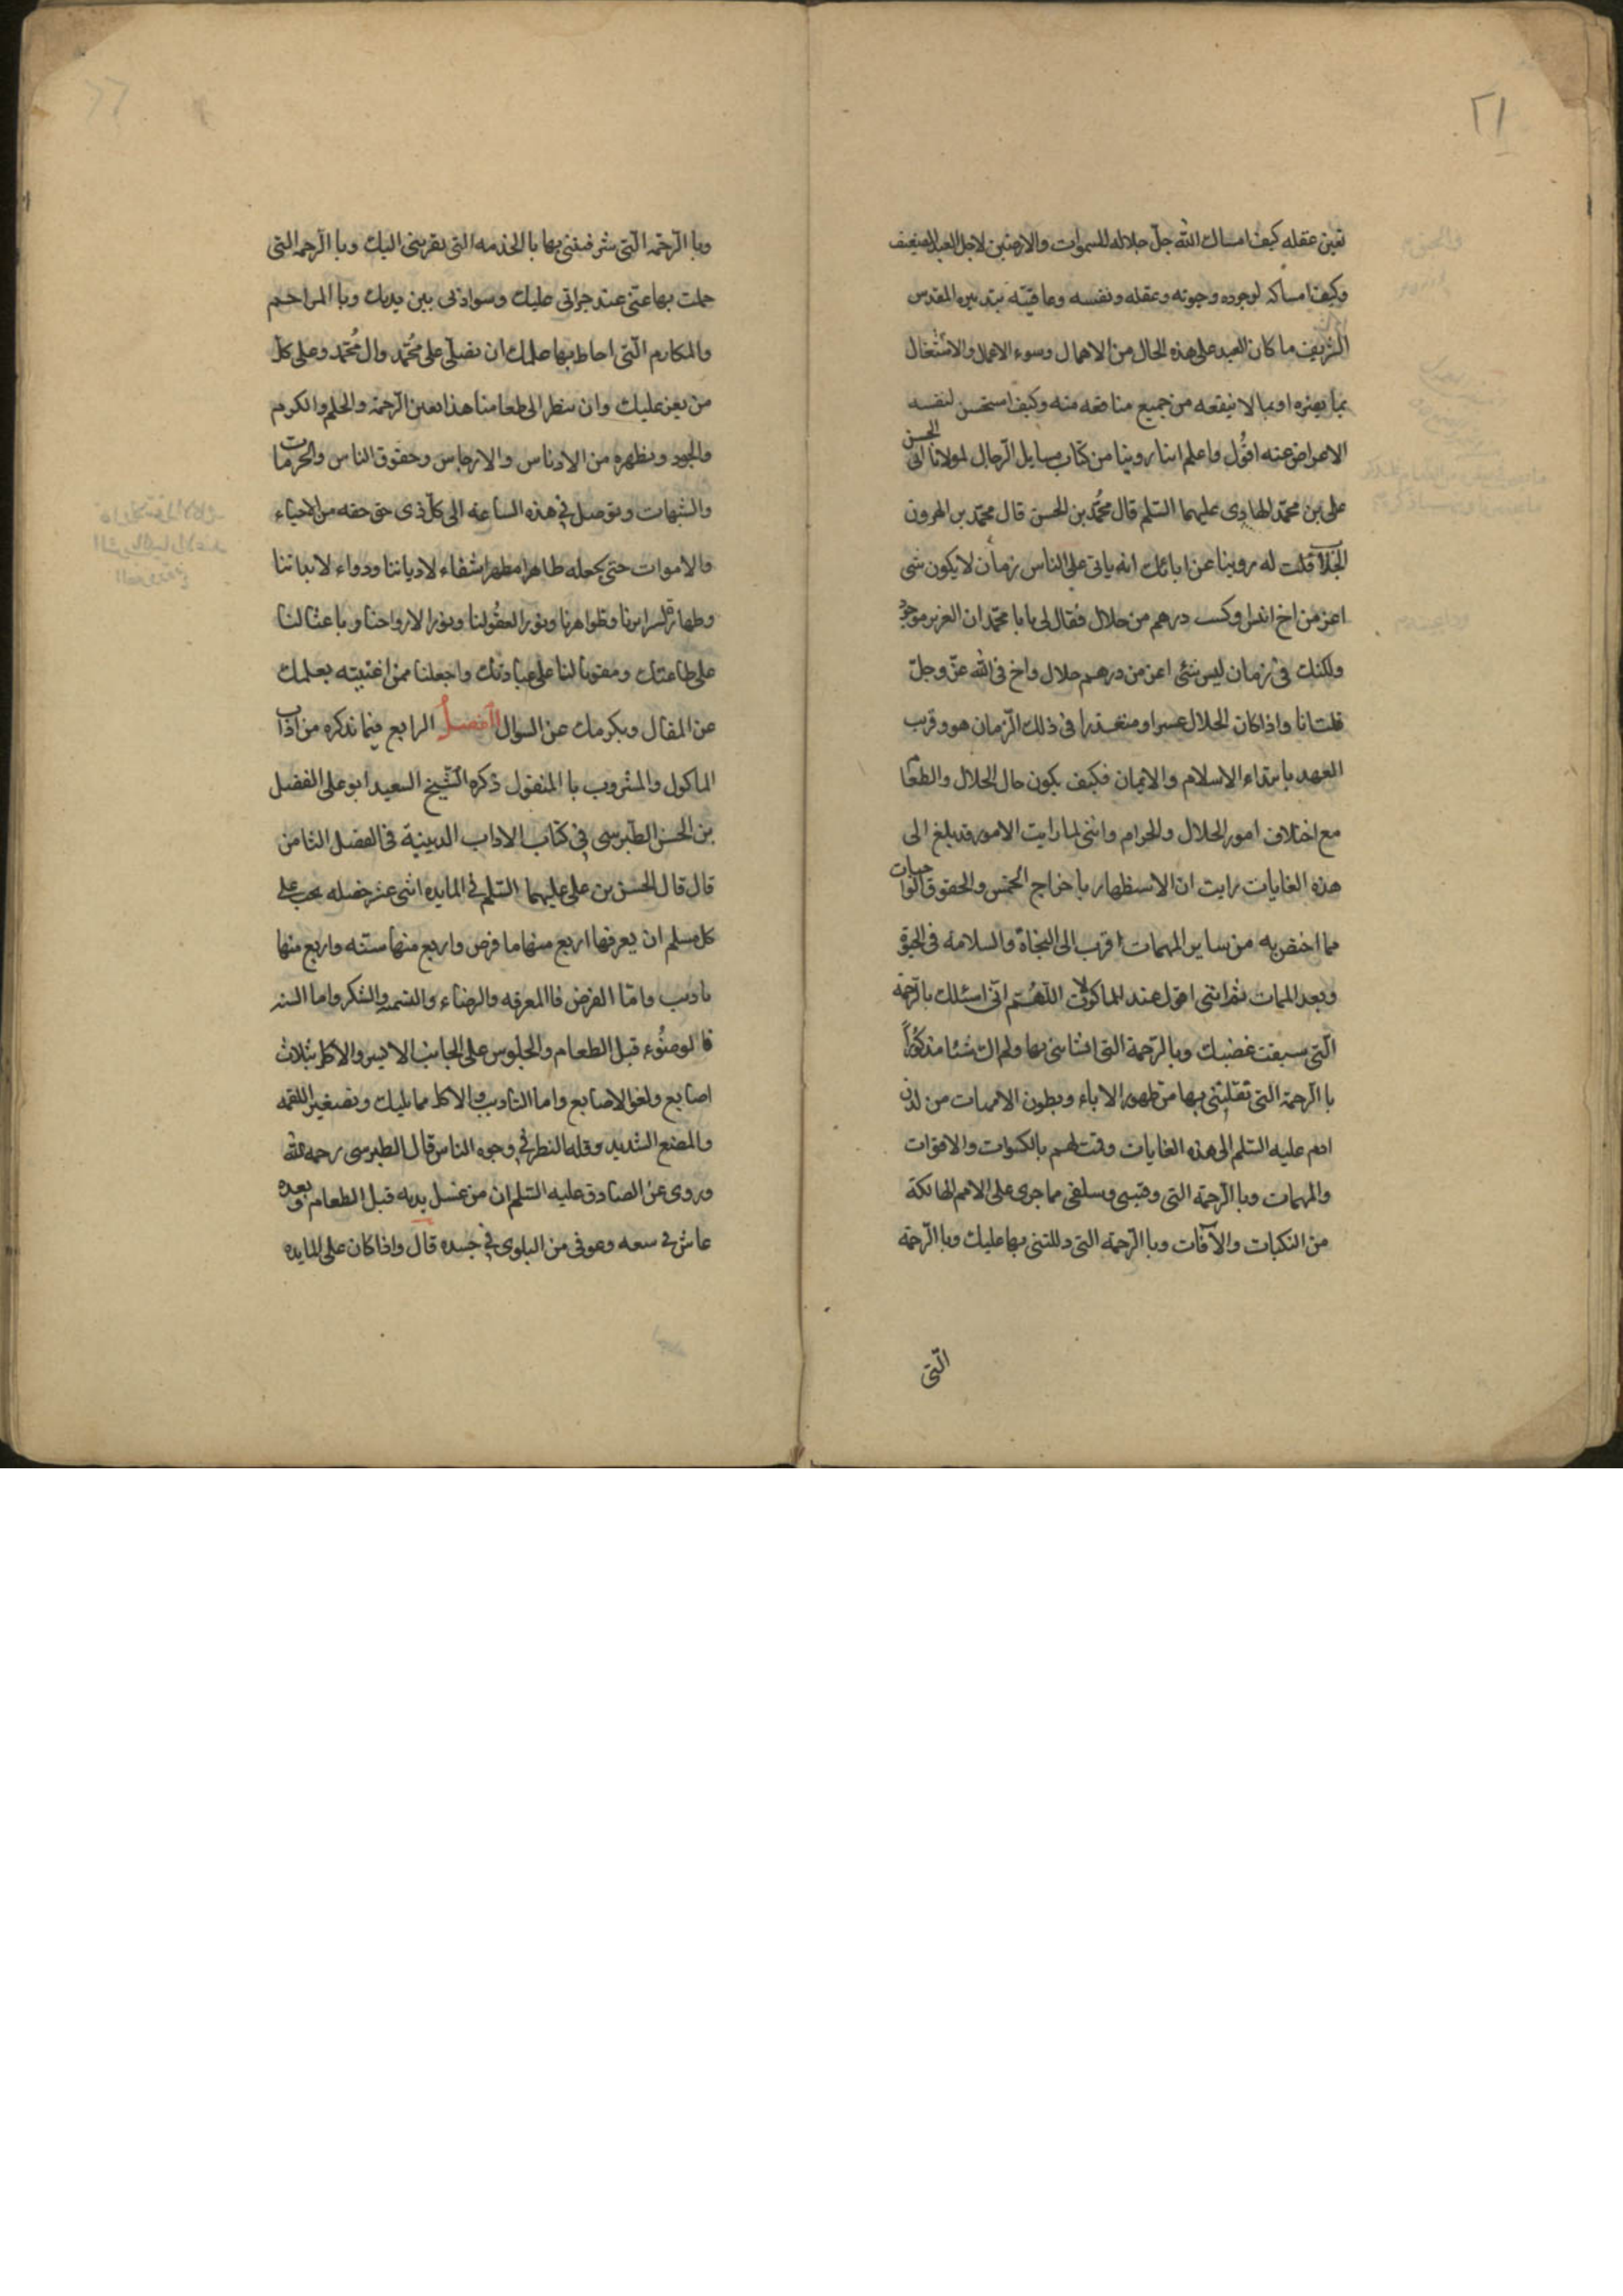 ٢١
بعين عقله كيف امساك الله جل جلاله للسموات والارضين لاجل العبد الضعيف
وكيف امساكه لوجوده وحيوته وعقله ونفسه وعافيته بتدبيره المقدس
الشريف ما كان العبد على هذه الحال من الاهمال وسوء الاعمال والاشتغال
بما يضره او بما لا ينفعه من جميع منافعه منه وكيف استحسن لنفسه
الاعراض عنه اقول واعلم اننا روينا من كتاب مسايل الرجال لمولانا ابى الحسن
على بن محمد الهادى عليهما السلم قال محمد بن الحسن قال محمد بن الهرون
الجلاب قلت له روينا عن ابائك انه ياتى على الناس زمان لا يكون شى
اعز من اخ انيس او كسب درهم من حلال فقال لى يا با محمد ان العزيز موجود
ولكنك فى زمان ليس شئى اعز من درهم حلال واخ فى الله عز وجل
قلت انا واذا كان الحلال عسيرا ومتعذرا فى ذلك الزمان هو وقريب
العهد بابتداء الاسلام والايمان فكيف يكون حال الحلال والطعام
مع اختلاف امور الحلال والحرام واننى لما رايت الامور قد بلغ الى
هذه الغايات رايت ان الاستظهار باخراج الخمس والحقوق الواجبات
مما اختص به من ساير المهمات اقرب الى النجاة والسلامة فى الحيوة
وبعد الممات ثم اننى اقول عند الماكولات اللهم انى اسئلك بالرحمة
التى سبقت غضبك وبالرحمة التى انشاتنى بها ولم اك شئا مذكورا
با الرحمة التى نقلتنى بها من ظهور الاباء وبطون الامهات من لدن
ادم عليه السلم الى هذه الغايات وقمت لهم بالكسوات والاقوات
والمهمات وبا الرحمة التى وقيتنى وسلفى مما جرى على الامم الهالكة
من النكبات والآفات وبا الرحمة التى دللتنى بها عليك وبا الرحمة
التى
وبا الرحمة التى شرفتنى بها با الخدمه التى يقربنى اليك وبا الرحمه التى
حلمت بها عنى عند جراتى عليك وسوء ادبى بين يديك وبا المراحم
والمكارم التى احاط بها علمك ان تصلى على محمد وال محمد وعلى كل
من يعز عليك وان تنظر الى طعامنا هذا بعين الرحمة والحلم والكرم
والجود وتطهره من الادناس والارجاس وحقوق الناس والحرمات
والشبهات وتوصل فى هذه الساعة الى كل ذى حق حقه من الاحياء
والاموات حتى تجعله طاهرا مطهرا شفاء لادياننا ودواء لابداننا
وطهارة لسرايرنا وظواهرنا ونورا لعقولنا ونورا لارواحنا وباعثا لنا
على طاعتك ومقويا لنا على عبادتك واجعلنا ممن اغنيته بعلمك
عن المقال وبكرمك عن السوال الفصل الرابع فيما نذكره من اداب
الماكول والمشروب با المنقول ذكره الشيخ السعيد ابو على الفضل
بن الحسن الطبرسى فى كتاب الاداب الدينية فى الفصل الثامن
قال قال الحسن بن على عليهما السلم فى المايده اثنى عشر خصله يجب على
كل مسلم ان يعرفها اربع منها ما فرض واربع منها سنه واربع منها
تاديب واما الفرض فا المعرفه والرضاء والتسميه والشكر واما السنه
فا لوضوء قبل الطعام والجلوس على الجانب الايسر والاكل بثلاث
اصابع ولعق الاصابع واما التاديب فا لاكل مما يليك وتصغير اللقمه
والمضغ الشديد وقله النظر فى وجوه الناس قال الطبرسى رحمه الله
وروى عن الصادق عليه السلم ان من غسل يديه قبل الطعام وبعده
عاش فى سعه وعوفى من البلوى فى جسده قال واذا كان على المايده